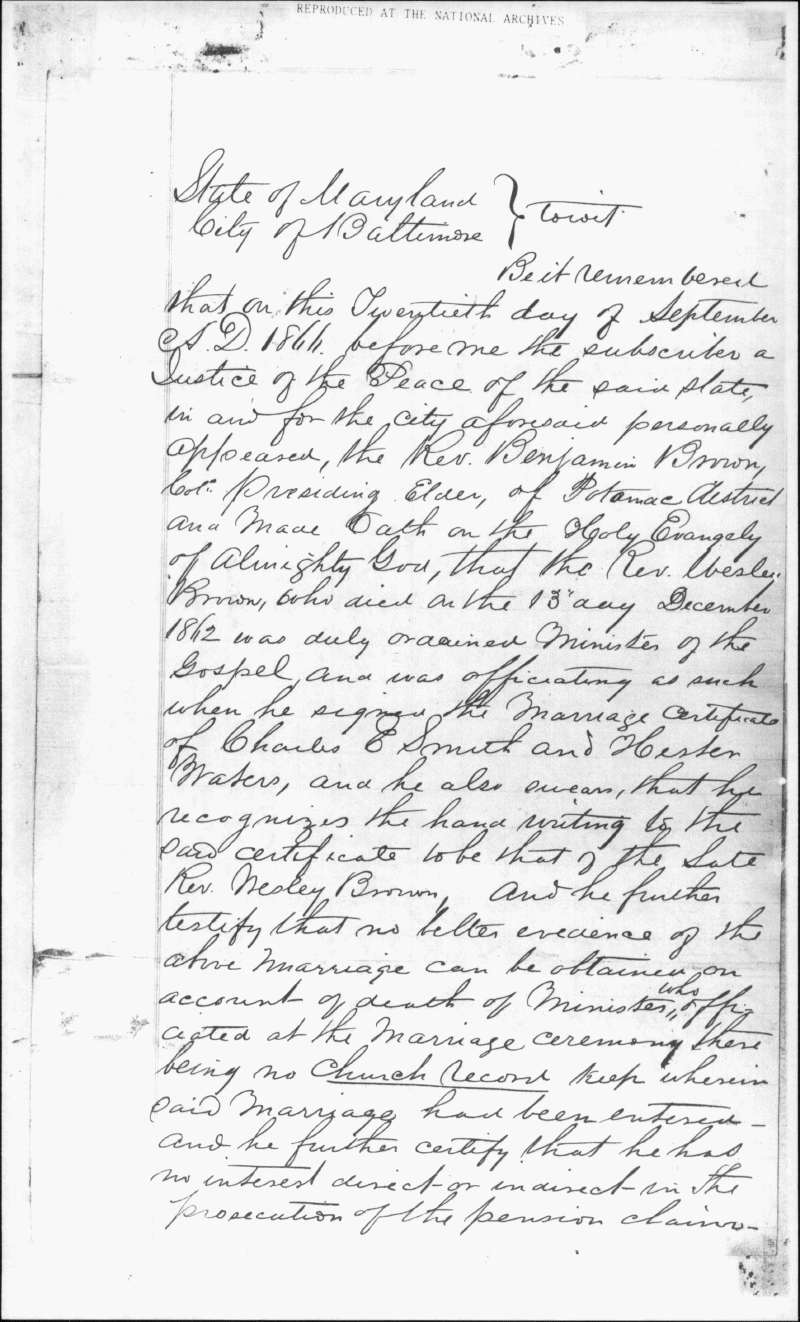 REPRODUCED AT THE NATIONAL ARCHIVES
State of Maryland
City of Baltimore } towit
Be it remembered
that on this Twentieth day of September
A.D. 1866. before me the subscriber a
Justice of the Peace of the said state,
in and for the city aforesaid personally
appeared, the Rev. Benjamin Brown,
Col.d Presiding Elder, of Potomac district
and Made Oath on the Holy Evangely
of Almighty God, that the Rev. Wesley
Brown, who died on the 13" day December
1862 was duly ordained Minister of the
Gospel, and was officiating as such
when he signed the Marriage Certificate
of Charles E Smith and Hester
Waters, and he also swears, that he
recognizes the hand writing to the
said certificate to be that of the Late
Rev. Wesley Brown, And he further
testify that no better evidence of the
above Marriage can be obtained, on
account of death of Minister, who offi-
ciated at the Marriage ceremony there
being no Church record keep wherein
said Marriage had been entered -
and he further certify that he has
no interest direct or indirect in The
prosecution of the pension claim -